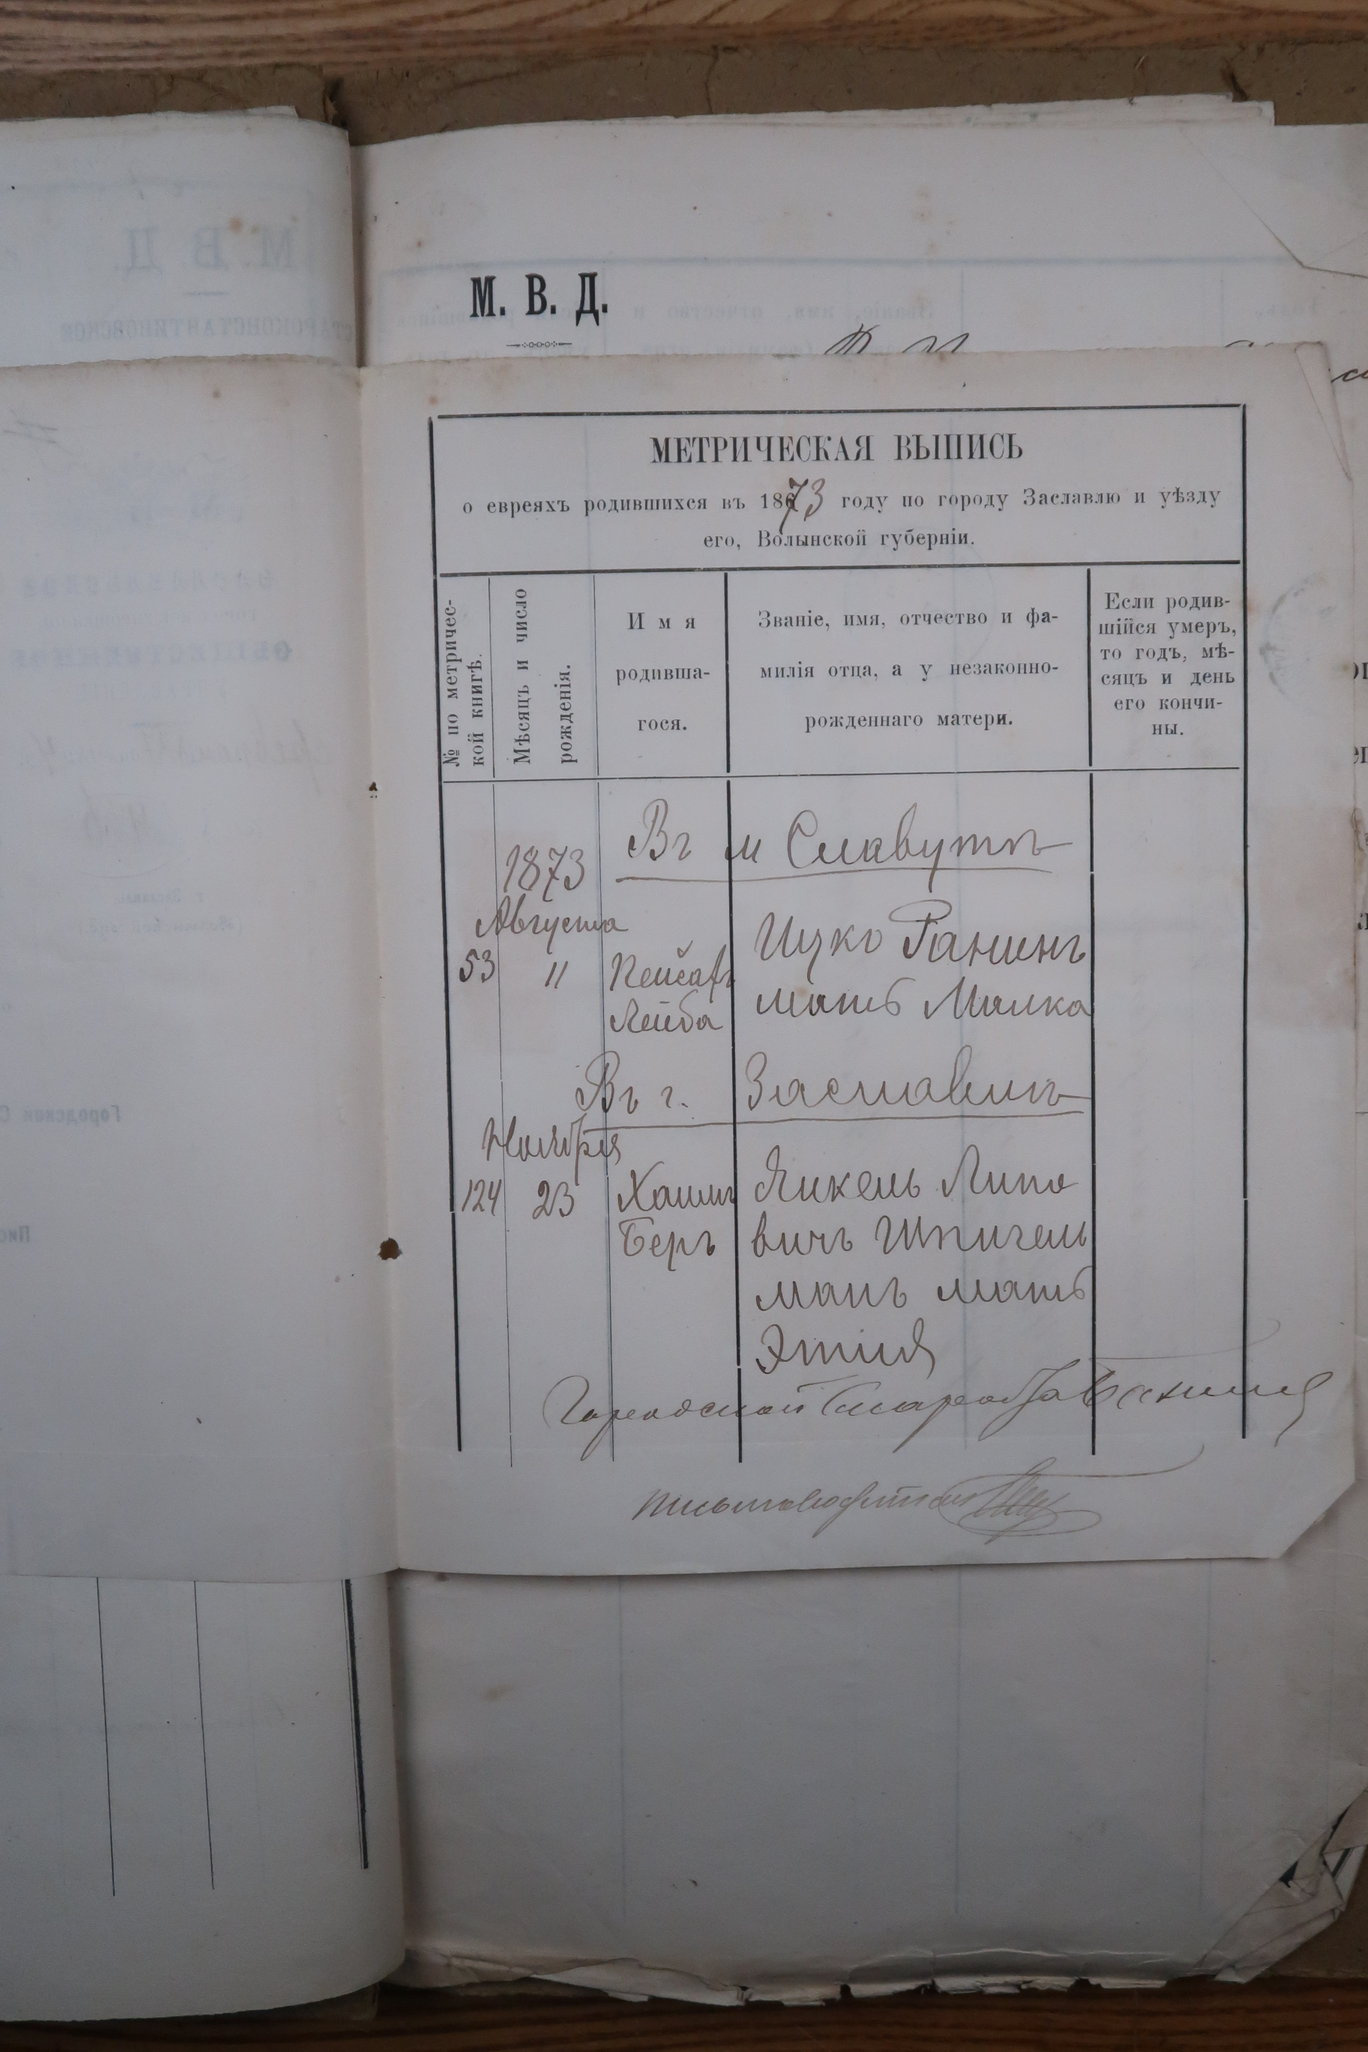 М. В. Д.
МЕТРИЧЕСКАЯ ВЫПИСЬ
о евреяхъ родившихся въ 1873 году по городу Заславлю и уѣзду
его, Волынской губерніи.
№ по метричес-
кой книгѣ.
Мѣсяцъ и число
рожденія.
Имя
родивша-
гося.
Званіе, имя, отчество и фа-
милія отца, а у незаконно-
рожденнаго матери.
Если родив-
шійся умеръ,
то годъ, мѣ-
сяцъ и день
его кончи-
ны.
Въ м Славутѣ
1873
Августа
53 11 Пейсахъ Ицко Ранинъ
Лейба мать Малка
Въ г. Заславлѣ
Ноября
124 23 Хаимъ Янкель Липо
Беръ вичъ Шпигель
манъ мать
Этля
Городской Староста
Письмоводитель